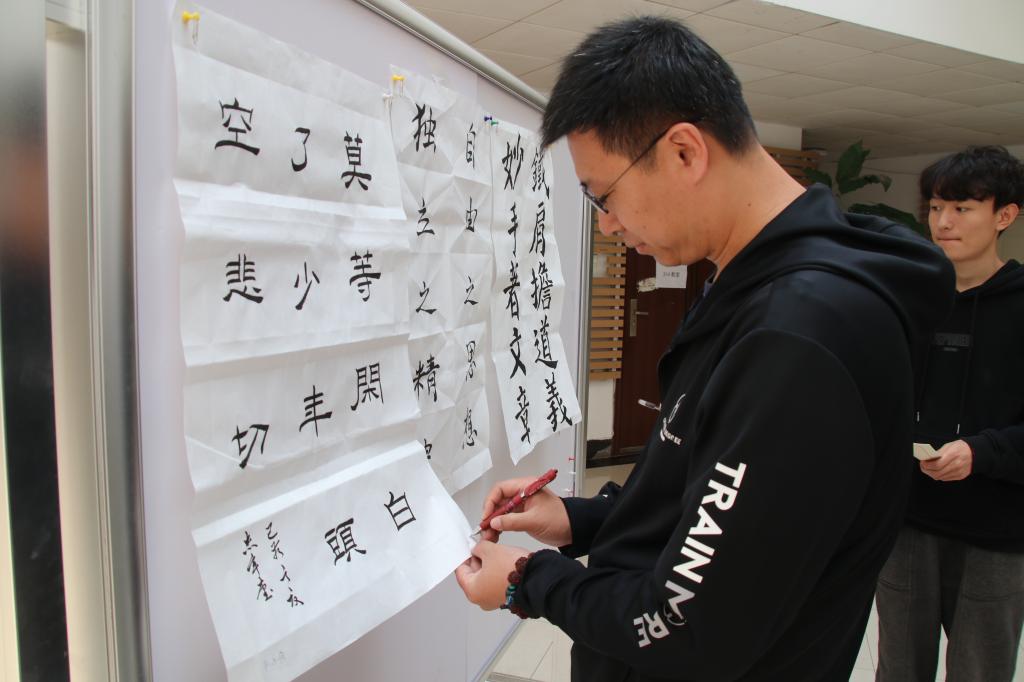 莫等閑白
了少年頭
空悲切
己亥
自由之思想
独立之精
鐵肩擔道義
妙手著文章
TRAIN
RE